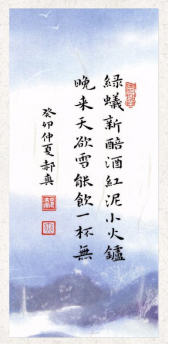 綠蟻新醅酒紅泥小火鑪
晚来天欲雪能飲一杯無
癸卯仲夏郝真